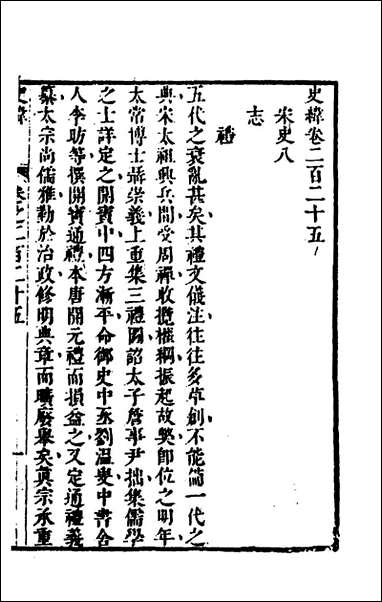 史緯卷二百二十五
宋史八
志
禮
五代之衰亂甚矣其禮文儀注往往多草創不能備一代之
典宋太祖興兵間受周禪收攬權綱振起故獘即位之明年
太常博士聶崇義上重集三禮圖詔太子詹事尹拙集儒學
之士詳定之開寶中四方漸平命御史中丞劉溫叟中書舍
人李昉等撰開寶通禮本唐開元禮而損益之又定通禮義
纂太宗尚儒雅勤於治政修明典章而曠廢舉矣真宗承重
史緯 卷之二百二十五 一